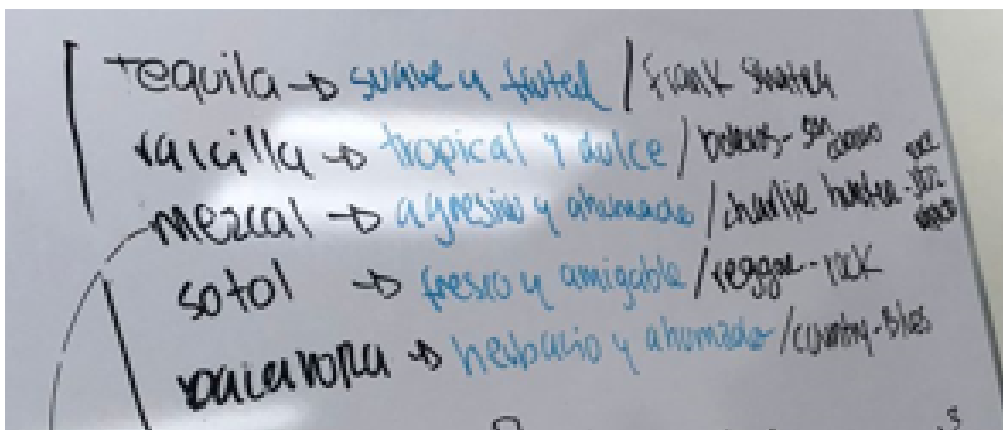 tequila → suave y frutal / Frank Sinatra
raicilla → tropical y dulce / boleros - son cubano
mezcal → agresivo y ahumado / charlie hunter - jazz
sotol → fresco y amigable / reggae - rock
bacanora → herbacio y ahumado / country - Blues